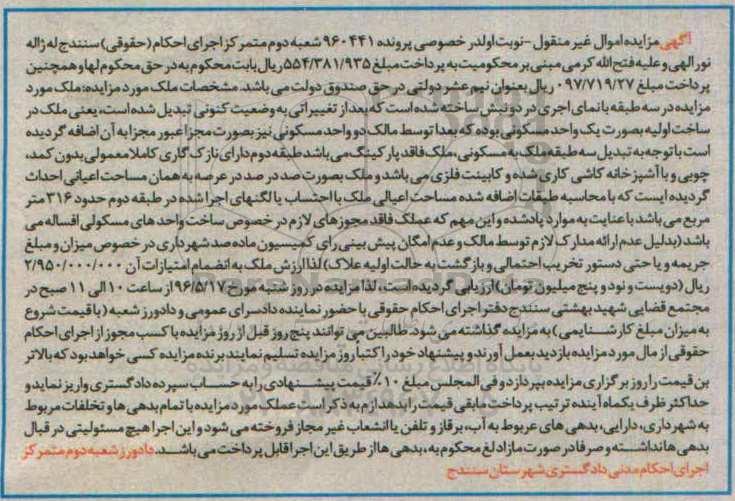 آگهی مزایده اموال غیر منقول -نوبت اولدر خصوصی پرونده ۹۶۰۴۴۱ شعبه دوم متمرکز اجرای احکام (حقوقی) سنندج له ژاله
نور الهی و علیه فتح الله کرمی مبنی بر محکومیت به پرداخت مبلغ ۵۵۴/۳۸۱/۹۳۵ ریال بابت محکوم به در حق محکوم لها و همچنین
پرداخت مبلغ ۰۹۷/۷۱۹/۲۷ ریال بعنوان نیم عشر دولتی در حق صندوق دولت می باشد. مشخصات ملک مورد مزایده: ملک مورد
مزایده در سه طبقه با نمای اجری در دو نبش ساخته شده است که بعد از تغییراتی به وضعیت کنونی تبدیل شده است، یعنی ملک در
ساخت اولیه بصورت یک واحد مسکونی بوده که بعدا توسط مالک دو واحد مسکونی نیز بصورت مجزا عبور مجزا به آن اضافه گردیده
است با توجه به تبدیل سه طبقه ملک به مسکونی، ملک فاقد پارکینگ می باشد طبقه دوم دارای نازک کاری کاملا معمولی بدون کمد،
چوبی و با آشپزخانه کاشی کاری شده و کابینت فلزی می باشد و ملک بصورت صد در صد در عرصه به همان مساحت اعیانی احداث
گردیده ایست که با محاسبه طبقات اضافه شده مساحت اعیالی ملک با احتساب یا لگنهای اجرا شده در طبقه دوم حدود ۳۱۶ متر
مربع می باشد با عنایت به موارد یادشده و این مهم که عملک فاقد مجوزهای لازم در خصوص ساخت واحدهای مسکولی اقساله می
باشد (بدلیل عدم ارائه مدارک لازم توسط مالک و عدم امکان پیش بینی رای کمیسیون ماده صد شهرداری در خصوص میزان و مبلغ
جریمه و یا حتی دستور تخریب احتمالی و بازگشت به حالت اولیه علاک) لذا ارزش ملک به انضمام امتیازات آن ۲/۹۵۰/۰۰۰/۰۰۰
ریال (دویست و نود و پنج میلیون تومان) ارزیابی گردیده است، لذا مزایده در روز شنبه مورخ ۹۶/۵/۱۷ از ساعت ۱۰ الی ۱۱ صبح در
مجتمع قضایی شهید بهشتی سنندج دفتر اجرای احکام حقوقی با حضور نماینده دادسرای عمومی و دادورز شعبه (با قیمت شروع
به میزان مبلغ کارشنایمی) به مزایده گذاشته می شود. طالبین می توانند پنج روز قبل از روز مزایده با کسب مجوز از اجرای احکام
حقوقی از مال مورد مزایده بازدید بعمل آورند و پیشنهاد خود را کتباً روز مزایده تسلیم نمایند برنده مزایده کسی خواهد بود که بالاتر
بن قیمت را روز برگزاری مزایده بپردازد و فی المجلس مبلغ ۱۰٪ قیمت پیشنهادی را به حساب سپرده دادگستری واریز نماید و
حداکثر ظرف یکماه آینده ترتیب پرداخت مابقی قیمت را بدهد لازم به ذکر است عملک مورد مزایده با تمام بدهی ها و تخلفات مربوط
به شهرداری، دارایی، بدهی های عربوط به آب، برق از و تلفن یا انشعاب غیر مجاز فروخته می شود و این اجرا هیچ مسئولیتی در قبال
بدهی ها نداشته و صرفا در صورت مازاد لغ محکوم به، بدهی ها از طریق این اجرا قابل پرداخت می باشد. دادورز شعبه دوم متمرکز
اجرای احکام مدنی دادگستری شهرستان سنندج